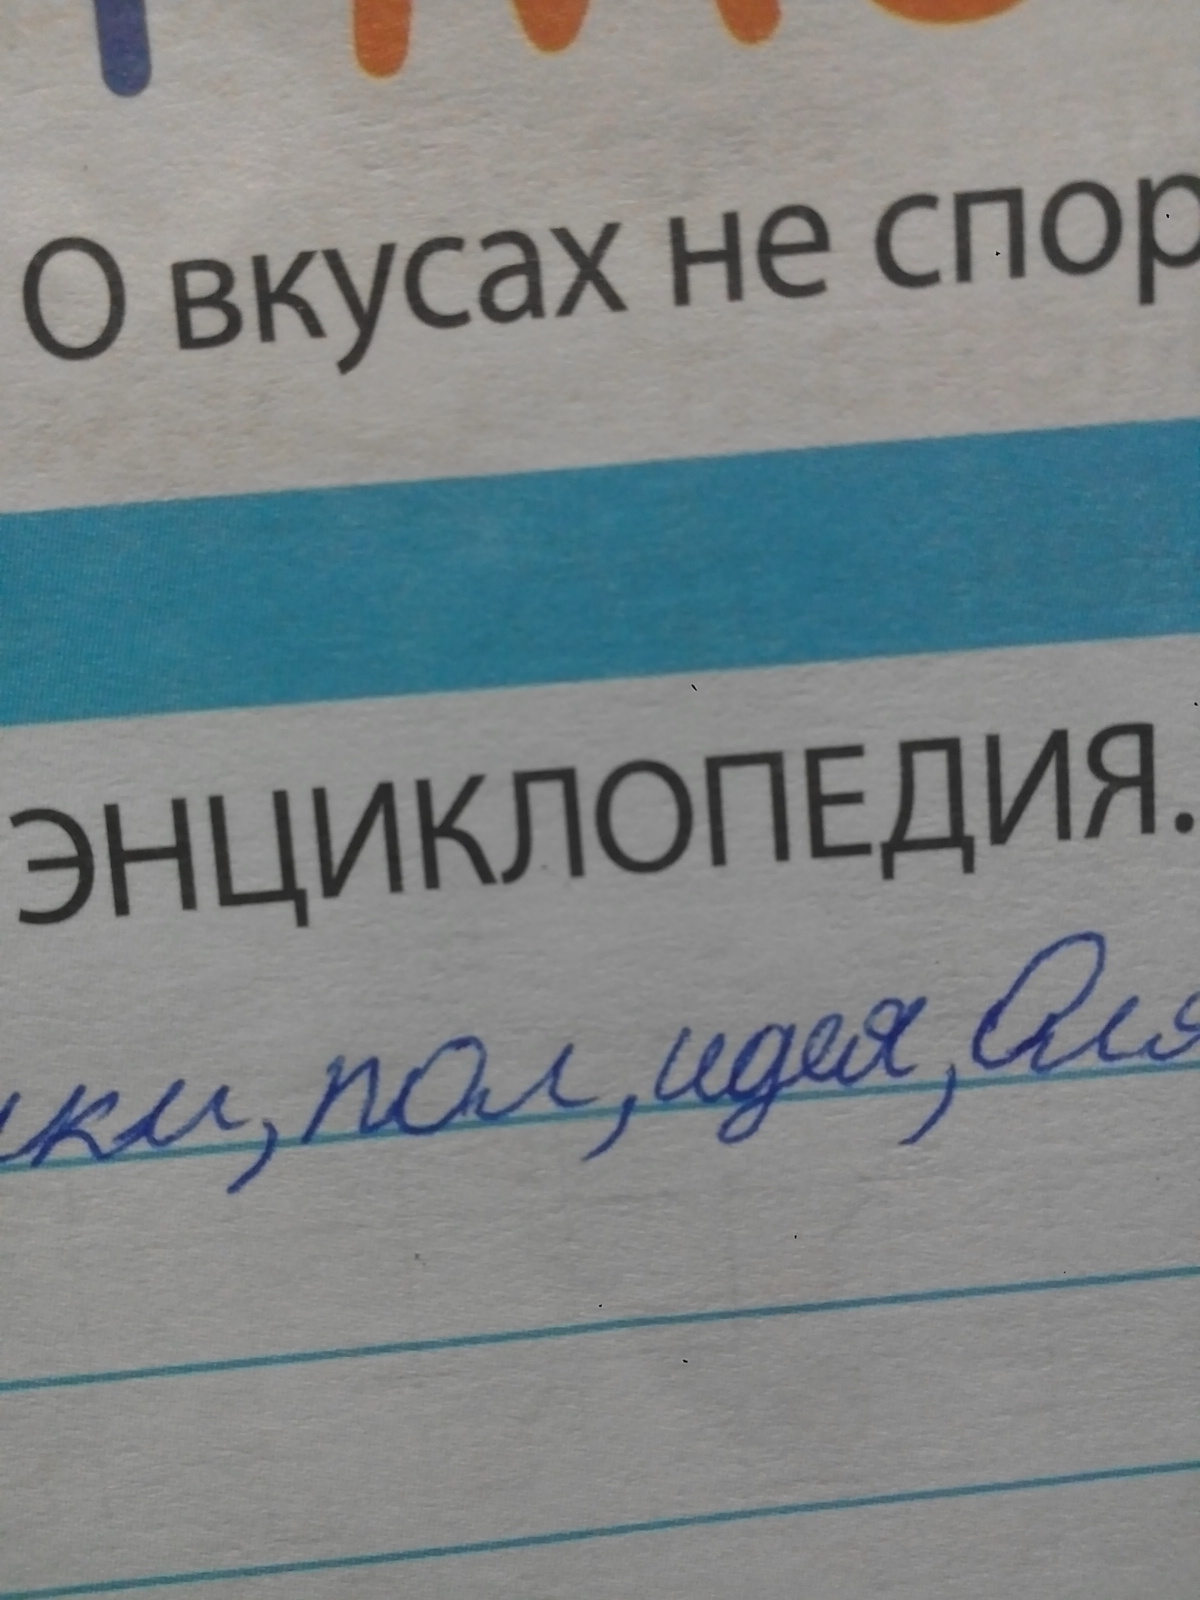 О вкусах не спор
ЭНЦИКЛОПЕДИЯ.
ики, пол, идея, Оля